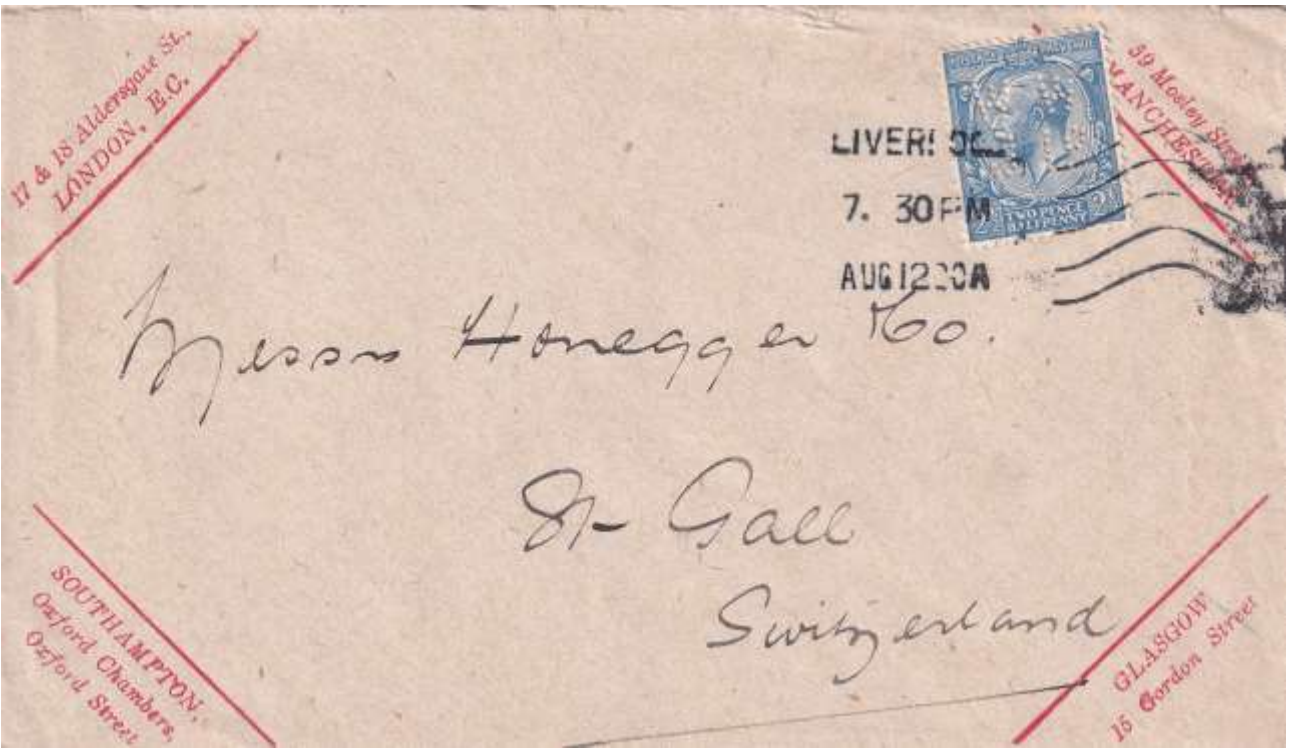 17 & 18 Aldersgate St.,
LONDON, E.C.
39 Mosley Street
MANCHES
LIVER
7. 30 PM
AUG 12 20 A
TWO PENCE
HALFPENNY
Messrs Honegger & Co.
St Gall
Switzerland
SOUTHAMPTON.
Oxford Chambers,
Oxford Street
GLASGOW
15 Gordon Street